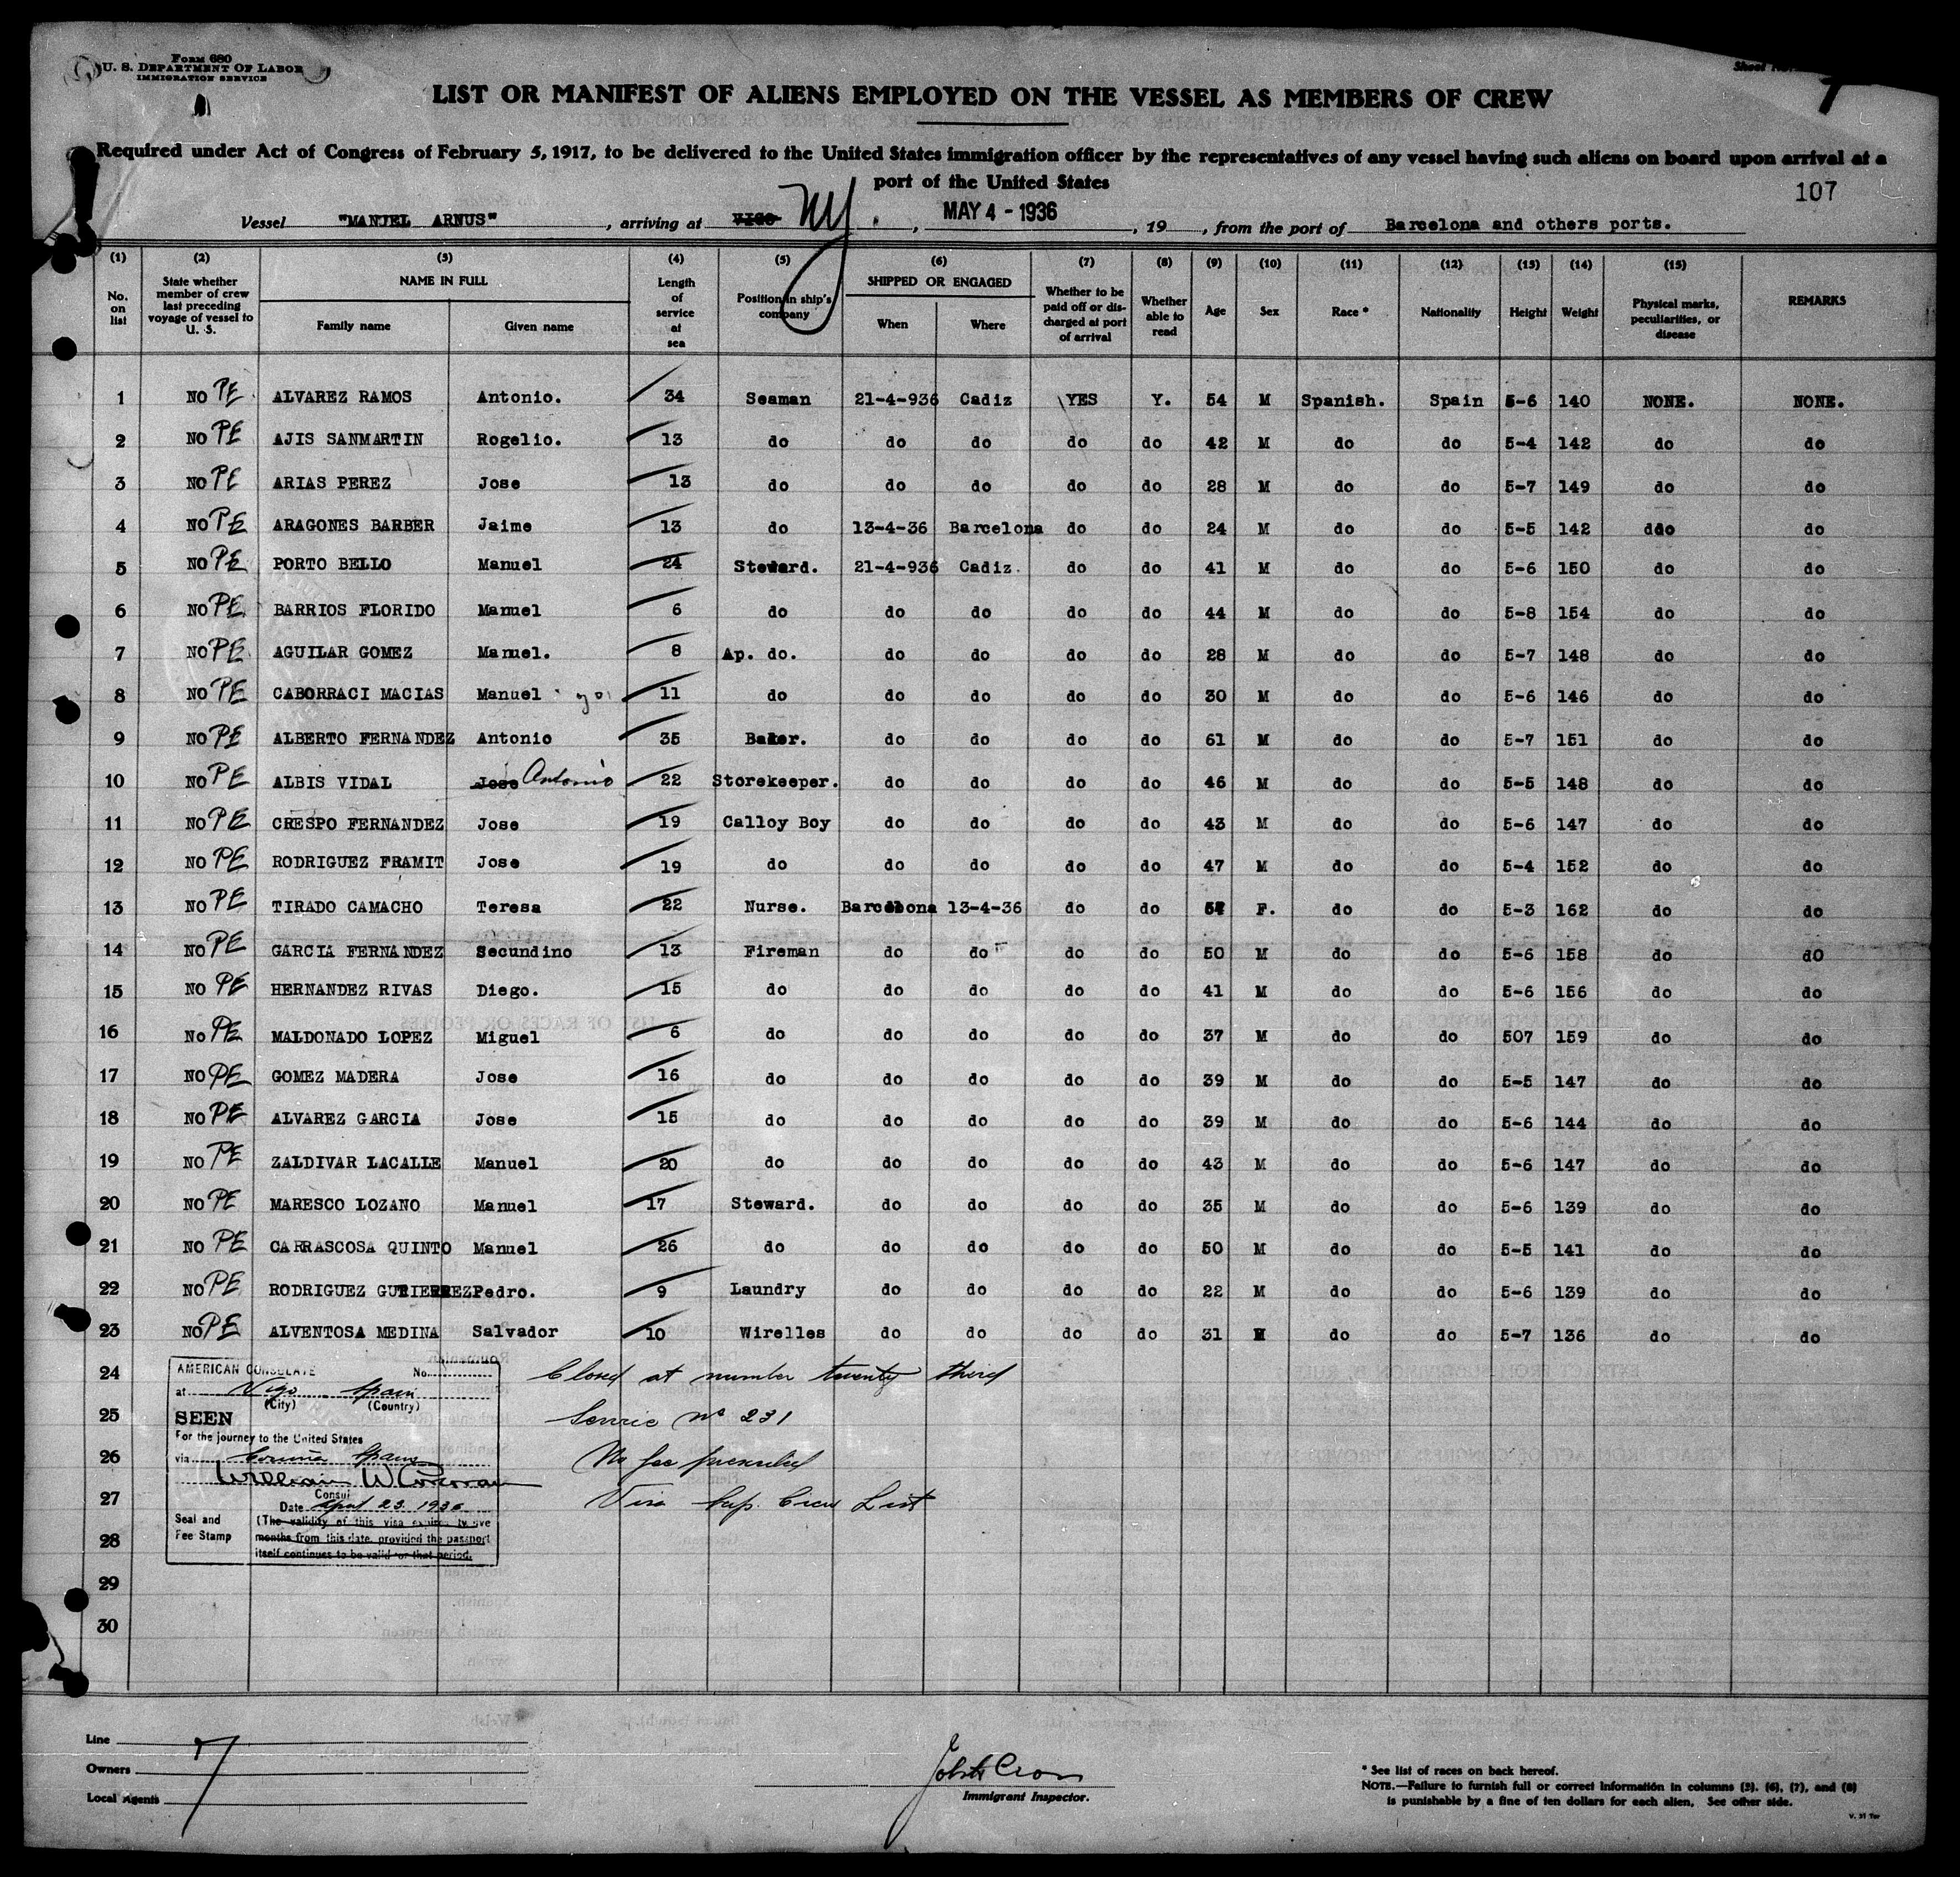 Form 680
U. S. DEPARTMENT OF LABOR
IMMIGRATION SERVICE
Sheet No.
7
LIST OR MANIFEST OF ALIENS EMPLOYED ON THE VESSEL AS MEMBERS OF CREW
Required under Act of Congress of February 5, 1917, to be delivered to the United States immigration officer by the representatives of any vessel having such aliens on board upon arrival at a
port of the United States
107
Vessel "MANUEL ARNUS", arriving at VIGO NY., MAY 4 - 1936, 19, from the port of Barcelona and others ports.
(1) (2) (3) (4) (5) (6) (7) (8) (9) (10) (11) (12) (13) (14) (15)
No. on list State whether member of crew last preceding voyage of vessel to U. S. NAME IN FULL Family name Given name Length of service at sea Position in ship's company SHIPPED OR ENGAGED When Where Whether to be paid off or discharged at port of arrival Whether able to read Age Sex Race * Nationality Height Weight Physical marks, peculiarities, or disease REMARKS
1 NO PE ALVAREZ RAMOS Antonio. 34 Seaman 21-4-936 Cadiz YES Y. 54 M Spanish. Spain 5-6 140 NONE. NONE.
2 NO PE AJIS SANMARTIN Rogelio. 13 do do do do do 42 M do do 5-4 142 do do
3 NO PE ARIAS PEREZ Jose 13 do do do do do 28 M do do 5-7 149 do do
4 NO PE ARAGONES BARBER Jaime 13 do 13-4-36 Barcelona do do 24 M do do 5-5 142 ddo do
5 NO PE PORTO BELLO Manuel 24 Steward. 21-4-936 Cadiz. do do 41 M do do 5-6 150 do do
6 NO PE BARRIOS FLORIDO Manuel 6 do do do do do 44 M do do 5-8 154 do do
7 NO PE AGUILAR GOMEZ Manuel. 8 Ap. do. do do do do 28 M do do 5-7 148 do do
8 NO PE CABORRACI MACIAS Manuel 11 do do do do do 30 M do do 5-6 146 do do
9 NO PE ALBERTO FERNANDEZ Antonio 35 Baker. do do do do 61 M do do 5-7 151 do do
10 NO PE ALBIS VIDAL Jose Antonio 22 Storekeeper. do do do do 46 M do do 5-5 148 do do
11 NO PE CRESPO FERNANDEZ Jose 19 Calloy Boy do do do do 43 M do do 5-6 147 do do
12 NO PE RODRIGUEZ FRAMIT Jose 19 do do do do do 47 M do do 5-4 152 do do
13 NO PE TIRADO CAMACHO Teresa 22 Nurse. Barcelona 13-4-36 do do F. do do 5-3 162 do do
14 NO PE GARCIA FERNANDEZ Secundino 13 Fireman do do do do 50 M do do 5-6 158 do dO
15 NO PE HERNANDEZ RIVAS Diego. 15 do do do do do 41 M do do 5-6 156 do do
16 NO PE MALDONADO LOPEZ Miguel 6 do do do do do 37 M do do 507 159 do do
17 NO PE GOMEZ MADERA Jose 16 do do do do do 39 M do do 5-5 147 do do
18 NO PE ALVAREZ GARCIA Jose 15 do do do do do 39 M do do 5-6 144 do do
19 NO PE ZALDIVAR LACALLE Manuel 20 do do do do do 43 M do do 5-6 147 do do
20 NO PE MARESCO LOZANO Manuel 17 Steward. do do do do 35 M do do 5-6 139 do do
21 NO PE CARRASCOSA QUINTO Manuel 26 do do do do do 50 M do do 5-5 141 do do
22 NO PE RODRIGUEZ GUTIERREZ Pedro. 9 Laundry do do do do 22 M do do 5-6 139 do do
23 NO PE ALVENTOSA MEDINA Salvador 10 Wirelles do do do do 31 M do do 5-7 136 do do
24 Closed at number twenty third
25 Service No 231
26 No fee prescribed
27 Visa Sup. Crew List
28
29
30
AMERICAN CONSULATE No.
at Vigo, Spain
(City) (Country)
SEEN
For the journey to the United States
via Coruña Spain
William W Corcoran
Consul
Date April 23. 1936
Seal and Fee Stamp
(The validity of this visa expires twelve
months from this date, provided the passport
itself continues to be valid for that period.
Line
Owners
Local Agents
7
Immigrant Inspector.
* See list of races on back hereof.
NOTE.—Failure to furnish full or correct information in columns (3), (6), (7), and (8)
is punishable by a fine of ten dollars for each alien. See other side.